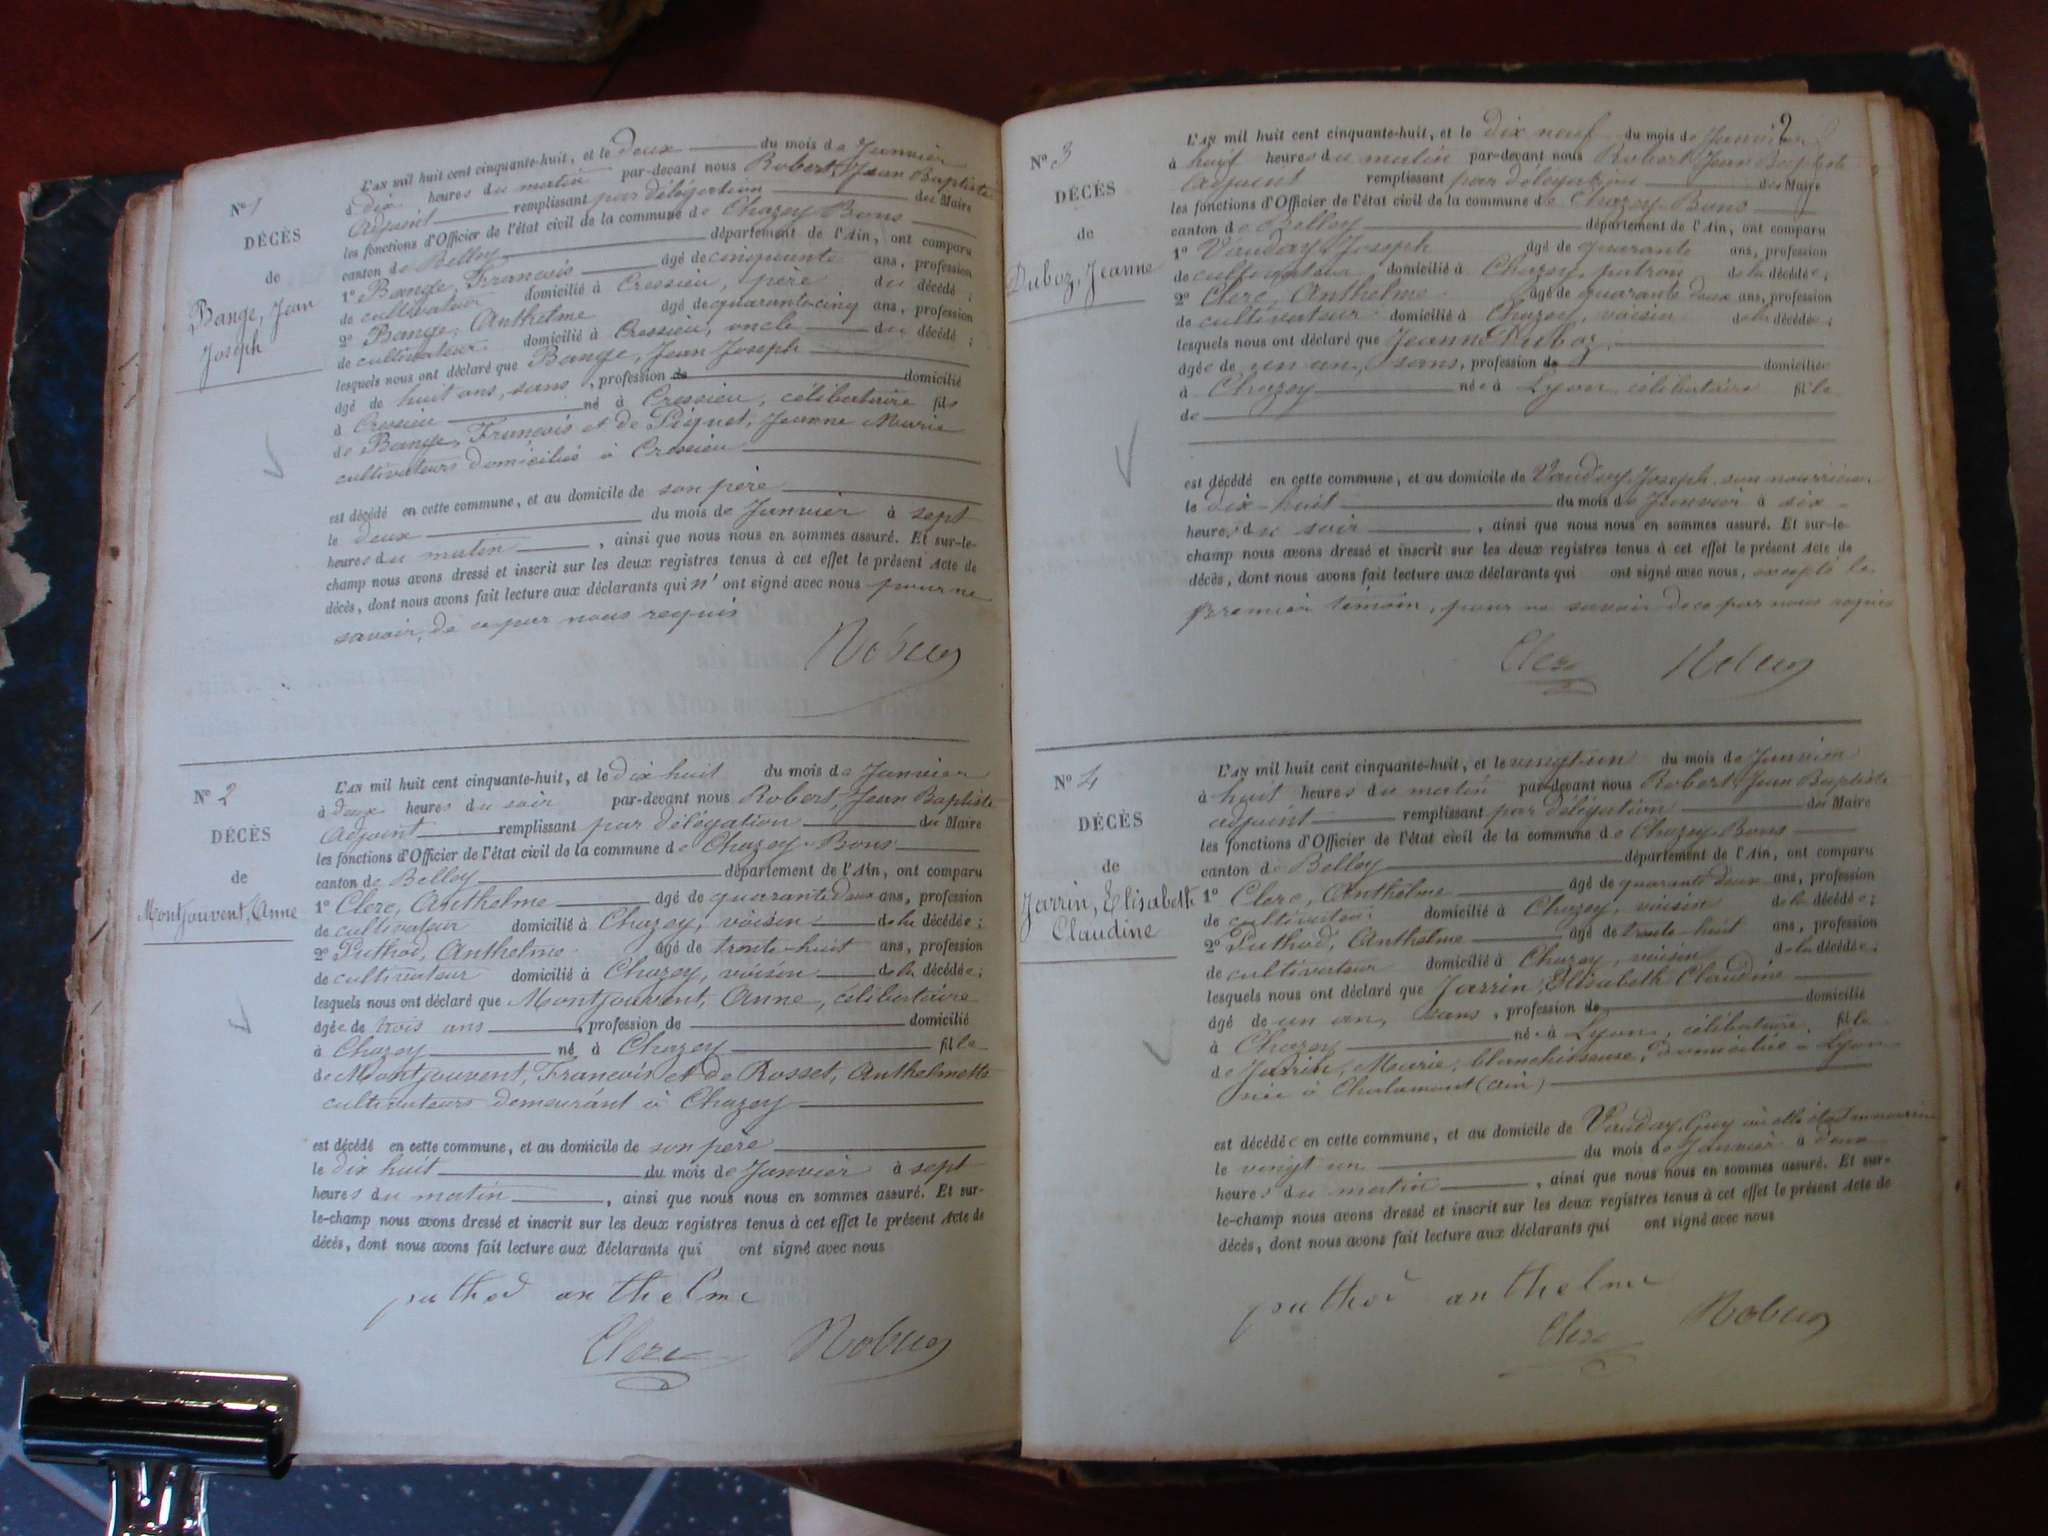 N° 1
DÉCÈS
de
Bange, Jean
Joseph
L'AN mil huit cent cinquante-huit, et le deux du mois de Janvier
à dix heures du matin par-devant nous Robert, Jean Baptiste
Adjoint remplissant par délégation du Maire
les fonctions d'Officier de l'état civil de la commune de Chazey-Bons
canton de Belley département de l'Ain, ont comparu
1° Bange, François âgé de cinquante ans, profession
de cultivateur domicilié à Cressieu, père du décédé ;
2° Bange, Anthelme âgé de quarante cinq ans, profession
de cultivateur domicilié à Cressieu, oncle du décédé ;
lesquels nous ont déclaré que Bange, Jean Joseph
âgé de huit ans, sans, profession de domicilié
à Cressieu né à Cressieu, célibataire fils
de Bange, François et de Piquet, Jeanne Marie
cultivateurs domiciliés à Cressieu
est décédé en cette commune, et au domicile de son père
le deux du mois de Janvier à sept
heures du matin, ainsi que nous nous en sommes assuré. Et sur-le-
champ nous avons dressé et inscrit sur les deux registres tenus à cet effet le présent Acte de
décès, dont nous avons fait lecture aux déclarants qui n'ont signé avec nous pour ne
savoir, de ce par nous requis
Robert
N° 2
DÉCÈS
de
Montjouvent, Anne
L'AN mil huit cent cinquante-huit, et le dix huit du mois de Janvier
à deux heures du soir par-devant nous Robert, Jean Baptiste
Adjoint remplissant par délégation du Maire
les fonctions d'Officier de l'état civil de la commune de Chazey-Bons
canton de Belley département de l'Ain, ont comparu
1° Clerc, Anthelme âgé de quarante deux ans, profession
de cultivateur domicilié à Chazey, voisin de la décédée ;
2° Puthod, Anthelme âgé de trente-huit ans, profession
de cultivateur domicilié à Chazey, voisin de la décédée ;
lesquels nous ont déclaré que Montjouvent, Anne, célibataire
âgée de trois ans, profession de domicilié
à Chazey né à Chazey fille
de Montjouvent, François et de Rosset, Anthelmette
cultivateurs demeurant à Chazey
est décédé en cette commune, et au domicile de son père
le dix huit du mois de Janvier à sept
heures du matin, ainsi que nous nous en sommes assuré. Et sur-
le-champ nous avons dressé et inscrit sur les deux registres tenus à cet effet le présent Acte de
décès, dont nous avons fait lecture aux déclarants qui ont signé avec nous
puthod anthelme
Clerc Robert
2
N° 3
DÉCÈS
de
Duboz, Jeanne
L'AN mil huit cent cinquante-huit, et le dix neuf du mois de Janvier
à huit heures du matin par-devant nous Robert, Jean Baptiste
Adjoint remplissant par délégation du Maire
les fonctions d'Officier de l'état civil de la commune de Chazey-Bons
canton de Belley département de l'Ain, ont comparu
1° Vauday, Joseph âgé de quarante ans, profession
de cultivateur, domicilié à Chazey, patron de la décédée ;
2° Clerc, Anthelme âgé de quarante deux ans, profession
de cultivateur domicilié à Chazey, voisin de la décédée ;
lesquels nous ont déclaré que Jeanne Duboz
âgée de un an, sans, profession de domiciliée
à Chazey née à Lyon célibataire fille
de
est décédé en cette commune, et au domicile de Vauday, Joseph son nourricier
le dix-huit du mois de Janvier à six
heures du soir, ainsi que nous nous en sommes assuré. Et sur-le-
champ nous avons dressé et inscrit sur les deux registres tenus à cet effet le présent Acte de
décès, dont nous avons fait lecture aux déclarants qui ont signé avec nous, excepté le
premier témoin, pour ne savoir de ce par nous requis
Clerc Robert
N° 4
DÉCÈS
de
Jarrin, Elisabeth
Claudine
L'AN mil huit cent cinquante-huit, et le vingt un du mois de Janvier
à huit heures du matin par-devant nous Robert, Jean Baptiste
adjoint remplissant par délégation du Maire
les fonctions d'Officier de l'état civil de la commune de Chazey-Bons
canton de Belley département de l'Ain, ont comparu
1° Clerc, Anthelme âgé de quarante deux ans, profession
de cultivateur domicilié à Chazey, voisin de la décédée ;
2° Puthod, Anthelme âgé de trente-huit ans, profession
de cultivateur domicilié à Chazey, voisin de la décédée ;
lesquels nous ont déclaré que Jarrin, Elisabeth Claudine
âgé de un an, sans, profession de domicilié
à Chazey née à Lyon, célibataire, fille
de Jarrin, Marie, blanchisseuse, domiciliée à Lyon
née à Chalamont (Ain)
est décédée en cette commune, et au domicile de Vauday, Guy où elle était en nourrice
le vingt un du mois de Janvier à deux
heures du matin, ainsi que nous nous en sommes assuré. Et sur-
le-champ nous avons dressé et inscrit sur les deux registres tenus à cet effet le présent Acte de
décès, dont nous avons fait lecture aux déclarants qui ont signé avec nous
puthod anthelme
Clerc Robert